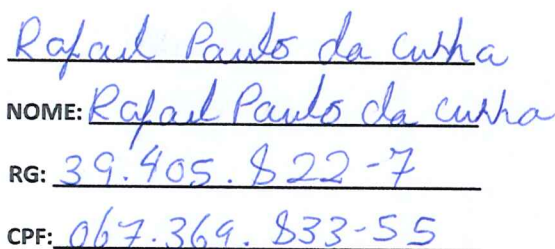 Rafael Paulo da Cunha
NOME: Rafael Paulo da Cunha
RG: 39.405.822-7
CPF: 067.369.833-55